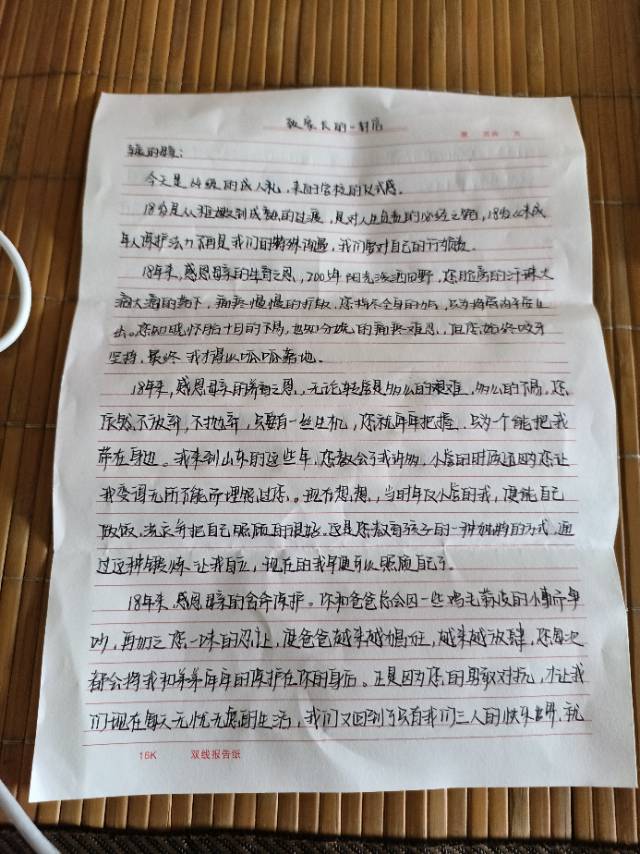 致家长的一封信
亲爱的母亲:
今天是 年级的成人礼,来自学校的仪式感。
18岁是从稚嫩到成熟的过渡,是对人生负责的必经之路,18岁以来成
年人保护法力不再是我们的特殊 ,我们要对自己的行为负责。
18年来,感恩母亲的生育之恩,2005年 阳光洒 田野,您 的汗珠大
滴大滴的落下,疼痛慢慢的扩散,您 尽全身的力气,只为将 内
出。您 怀胎十月的不易, 知分娩的痛疼难忍,但您始终咬牙
坚持,最终我才得以呱呱落地。
18年来,感恩母亲的养育之恩,无论 是多么的艰难,多么的不易,您
依然不放弃,不抛弃,只要有一丝生机,您就牢牢把握,只为一个能把我
带在身边。我来到山东的这些年,您教会了我许多,小 的时候 的您让
我变得无所不能 理解过您。现在想想,当时年仅小 的我,便能自己
做饭,洗衣并把自己照顾的很好,这是您教育孩子的一种 的方式,通
过这种锻炼让我自立,现在的我早便可以照顾自己了。
18年来,感恩母亲的舍命保护。你和爸爸总会因一些鸡毛蒜皮的小事而争
吵,再加之您一味的忍让,使爸爸越来越猖狂,越来越放肆,您每次
都会将我和弟弟牢牢的保护在你的身后。正是因为您的勇敢对抗,才让我
们现在每天无忧无虑的生活,我们又回到了只有我们三人的快乐世界,就
16K 双线报告纸